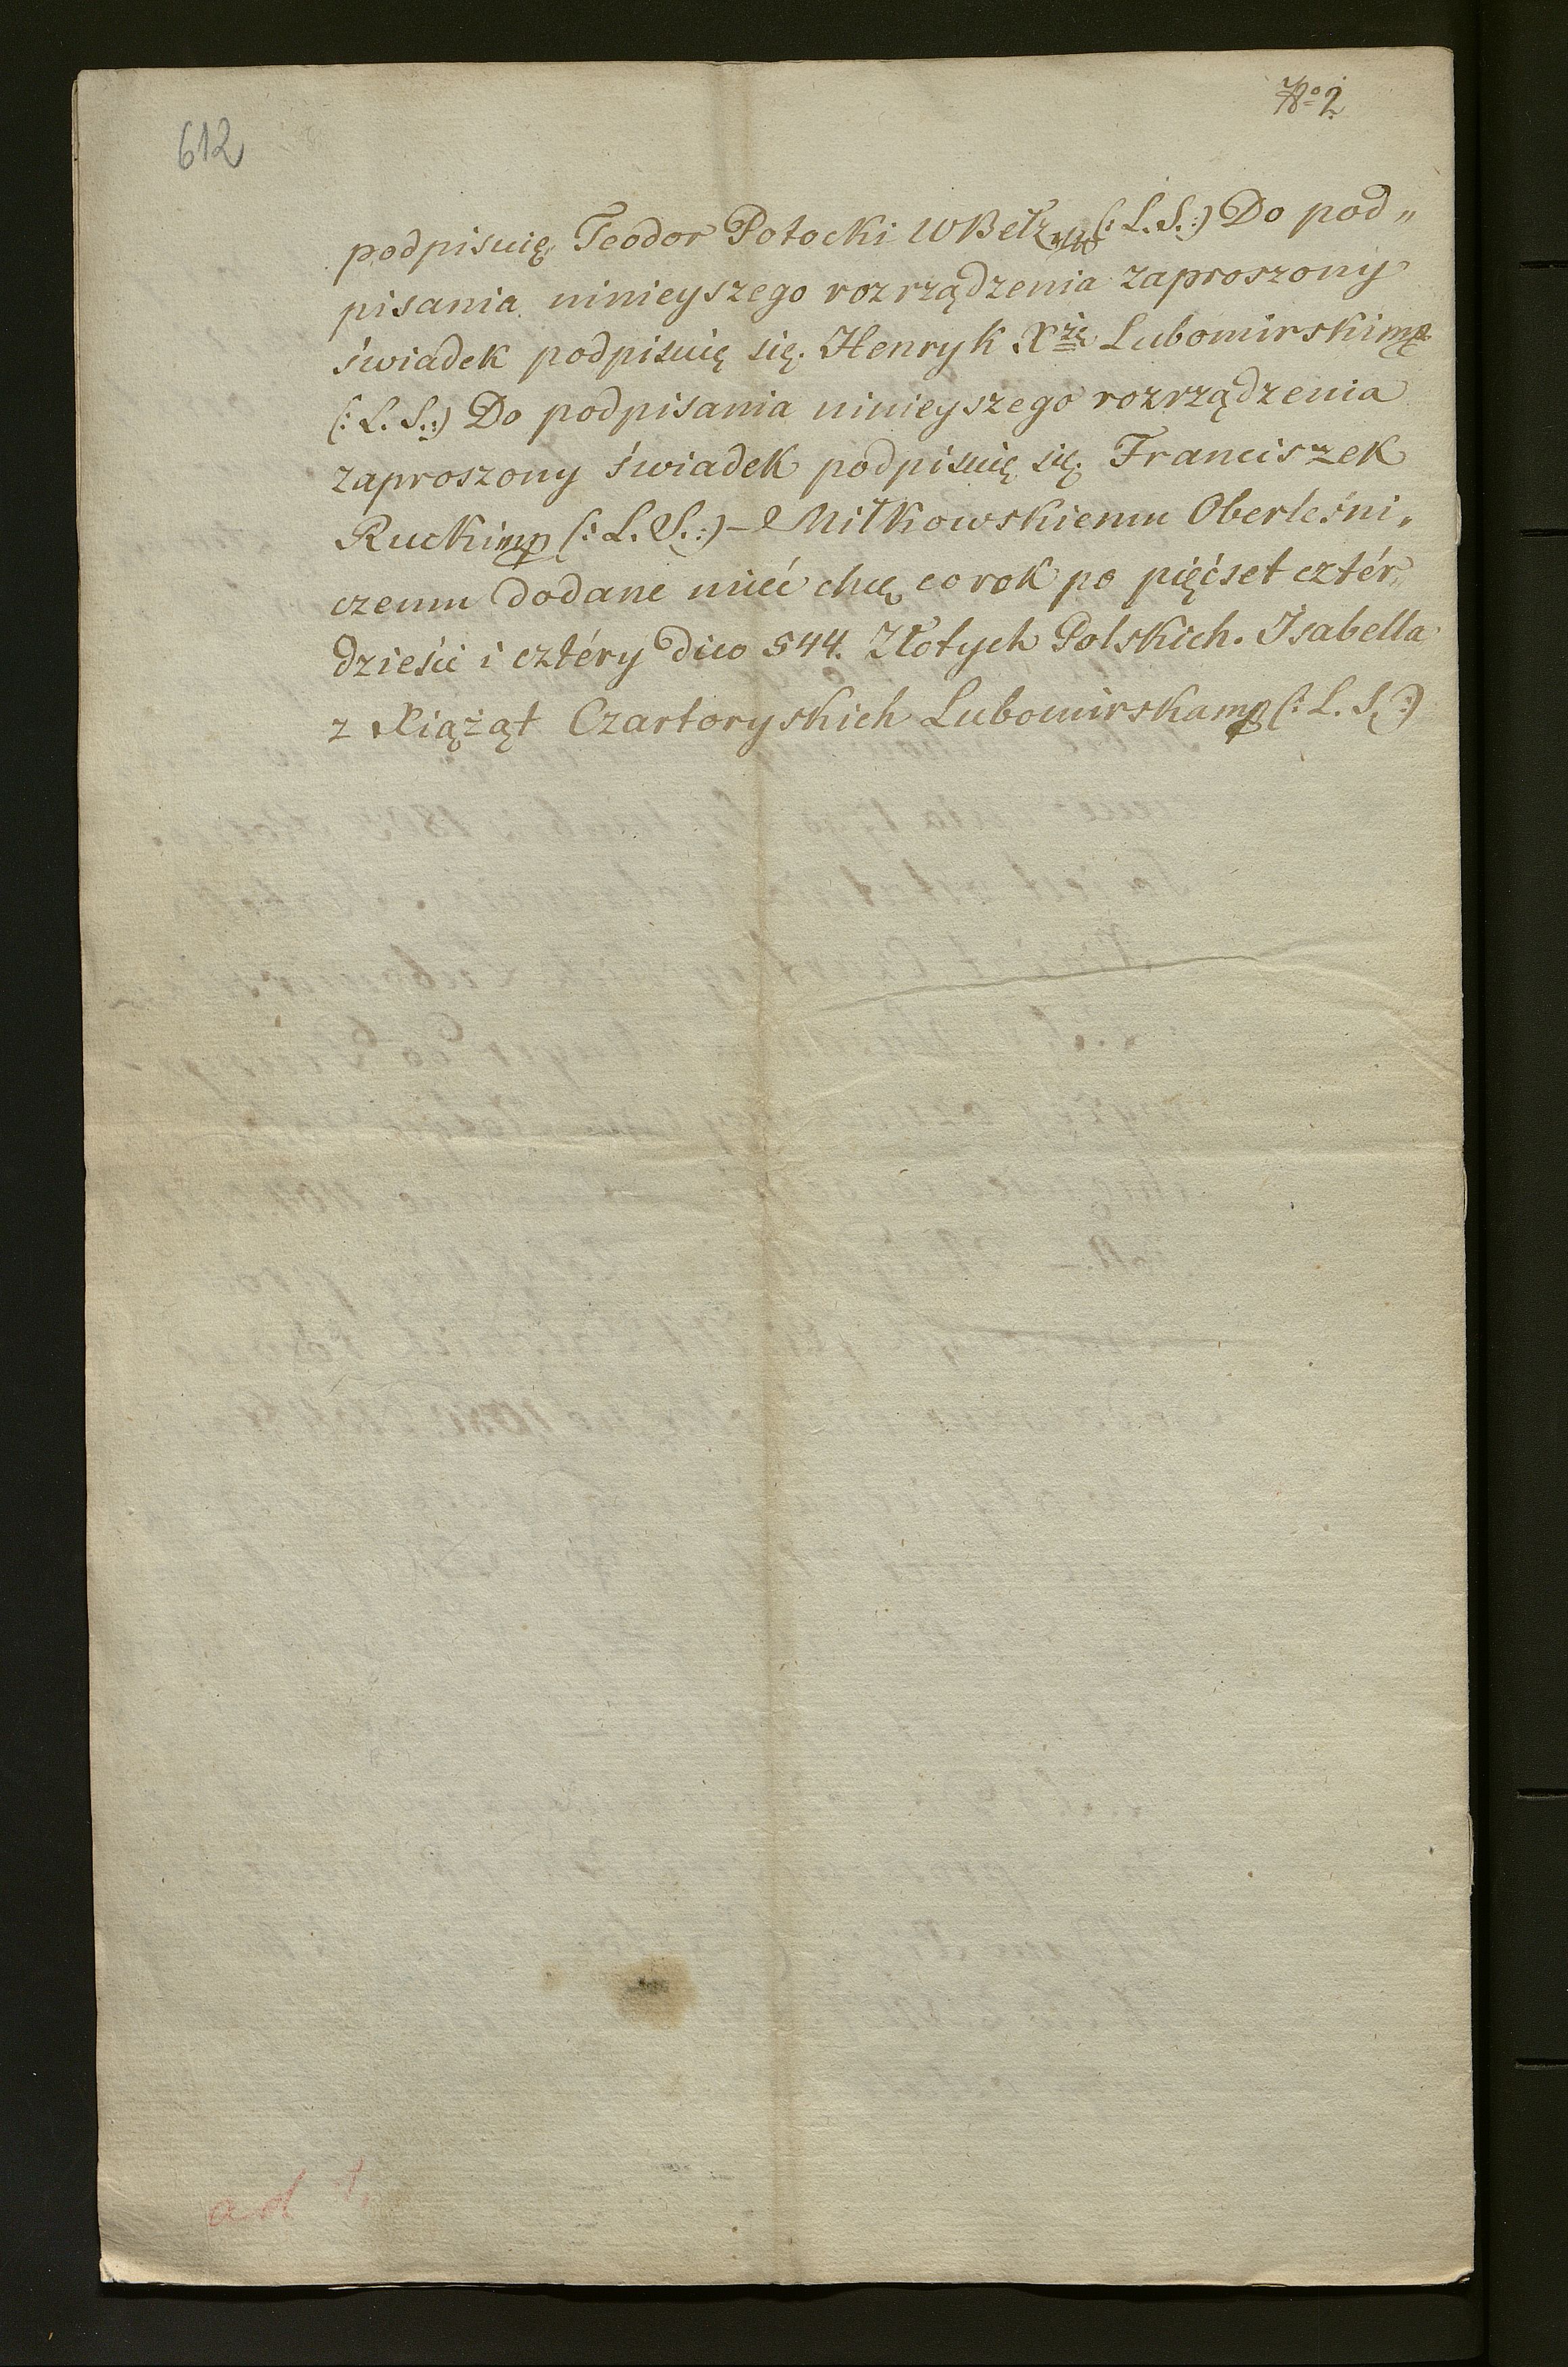 No 2
612
podpisuię Teodor Potocki WBełz mp (: L. S.:) Do pod„
pisania ninieyszego rozrządzenia zaproszony
świadek podpisuię się. Henryk Xżę Lubomirski mp
(: L. S.:) Do podpisania ninieyszego rozrządzenia
zaproszony świadek podpisuię się. Franciszek
Rucki mp (: L. S.:) – Miłkowskiemu Oberleśni„
czemu dodane mieć chcę co rok po pięćset cztér„
dzieści i cztéry dico 544. Złotych Polskich. Isabella
z Xiążąt Czartoryskich Lubomirska mp (: L. S.:)
ad 1.